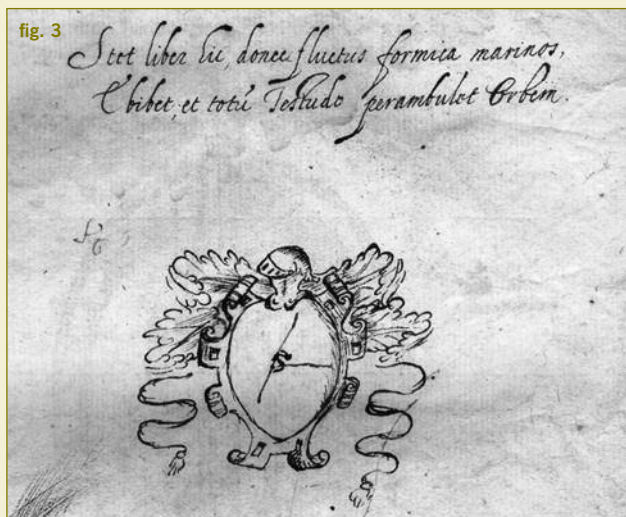 fig. 3
Stet liber hic, donec fluctus formica marinos,
Ebibet, et totū Testudo perambulet Orbem.
S